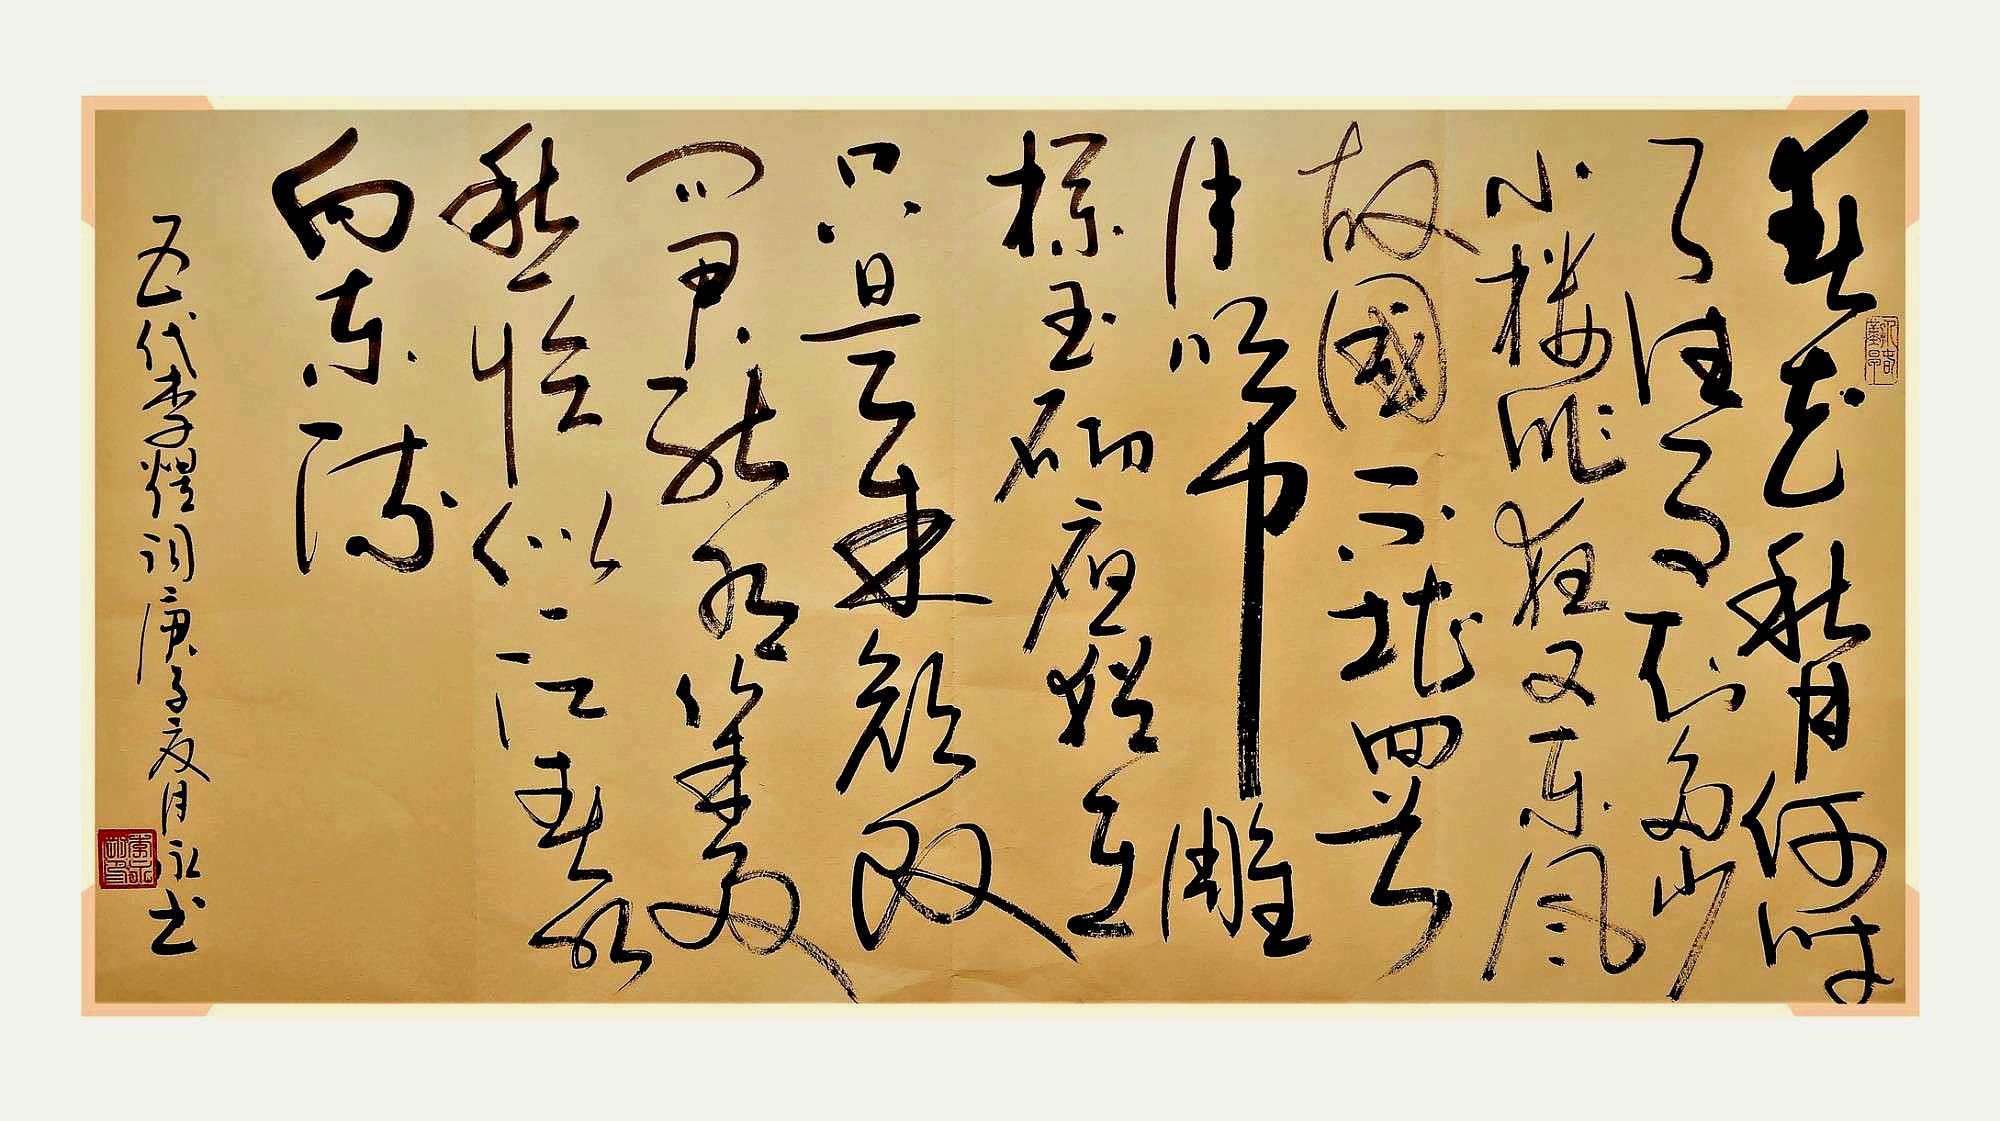 春花秋月何时
了往事知多少
小楼昨夜又东风
故國不堪回首
月明中雕
栏玉砌应犹在
只是朱颜改
问君能有幾多
愁恰似一江春水
向东流
五代李煜词庚子夏月永书